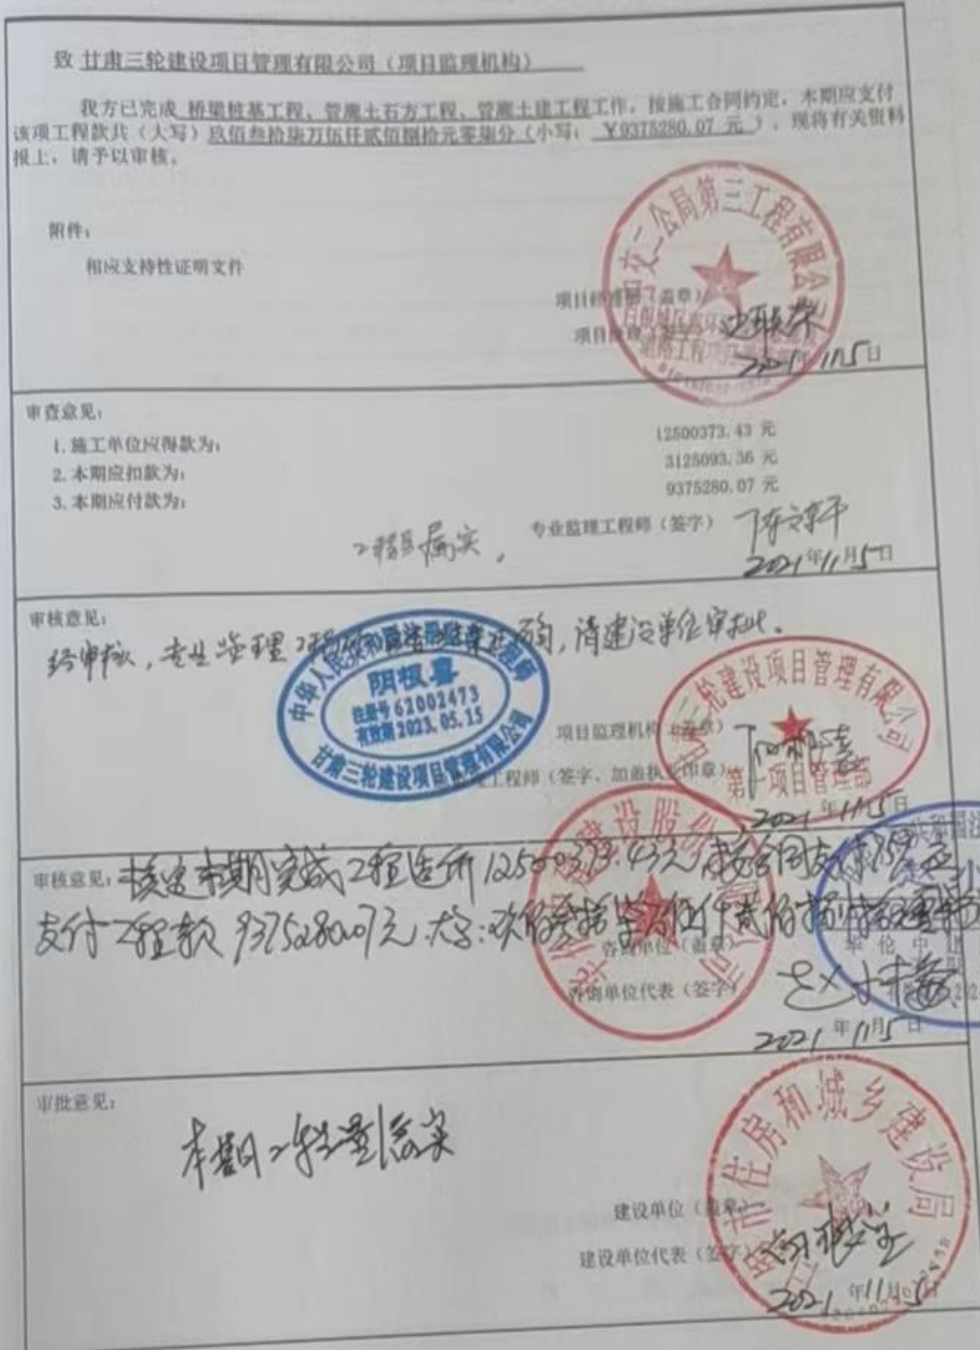 致 甘肃三轮建设项目管理有限公司（项目监理机构）
我方已完成 桥梁桩基工程、管廊土石方工程、管廊土建工程工作，按施工合同约定，本期应支付
该项工程款共（大写）玖佰叁拾柒万伍仟贰佰捌拾元零柒分（小写： ￥9375280.07 元 ），现将有关资料
报上，请予以审核。
附件：
相应支持性证明文件
交二公局第三工程有限公
项目（盖章）
项目
2021年11月5日
审查意见：
1. 施工单位应得款为： 12500373.43 元
2. 本期应扣款为： 3125093.36 元
3. 本期应付款为： 9375280.07 元
属实。
专业监理工程师（签字）
2021年11月5日
审核意见：
经审核，专业监理 ，请建设单位审批。
中华人民共和国注册监理工程师
阴极喜
注册号 62002473
有效期 2023.05.15
甘肃三轮建设项目管理有限公司
项目监理机构（盖章）
工程师（签字、加盖执业印章）
三轮建设项目管理有限公司
第一项目管理部
2021年11月5日
审核意见：核定本期完成工程造价12500373.43元 按合同支付75%
支付工程款9375280.07元 大写：玖佰叁拾柒万伍仟贰佰捌拾元零柒
建设股份
咨询单位（盖章）
咨询单位代表（签字）
2021年11月5日
审批意见：
本期工程量属实
市住房和城乡建设局
建设单位（盖章）
建设单位代表（签字）
2021年11月5日